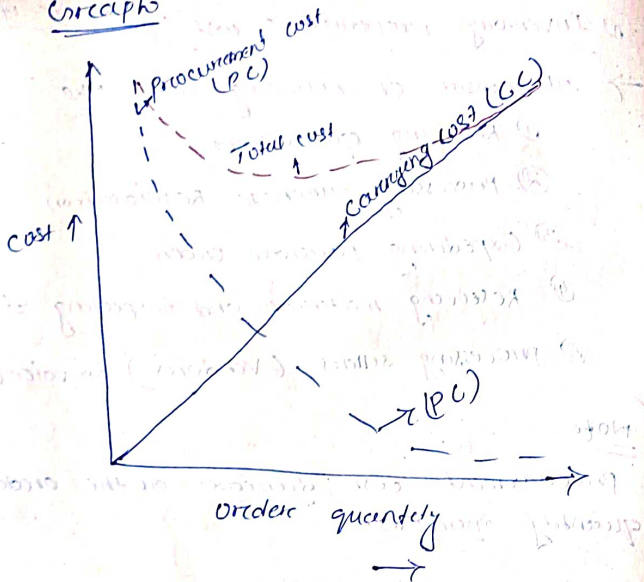 procurement cost
(PC)
Total cost
Carrying cost (CC)
cost ↑
→ (PC)
order quantity
→